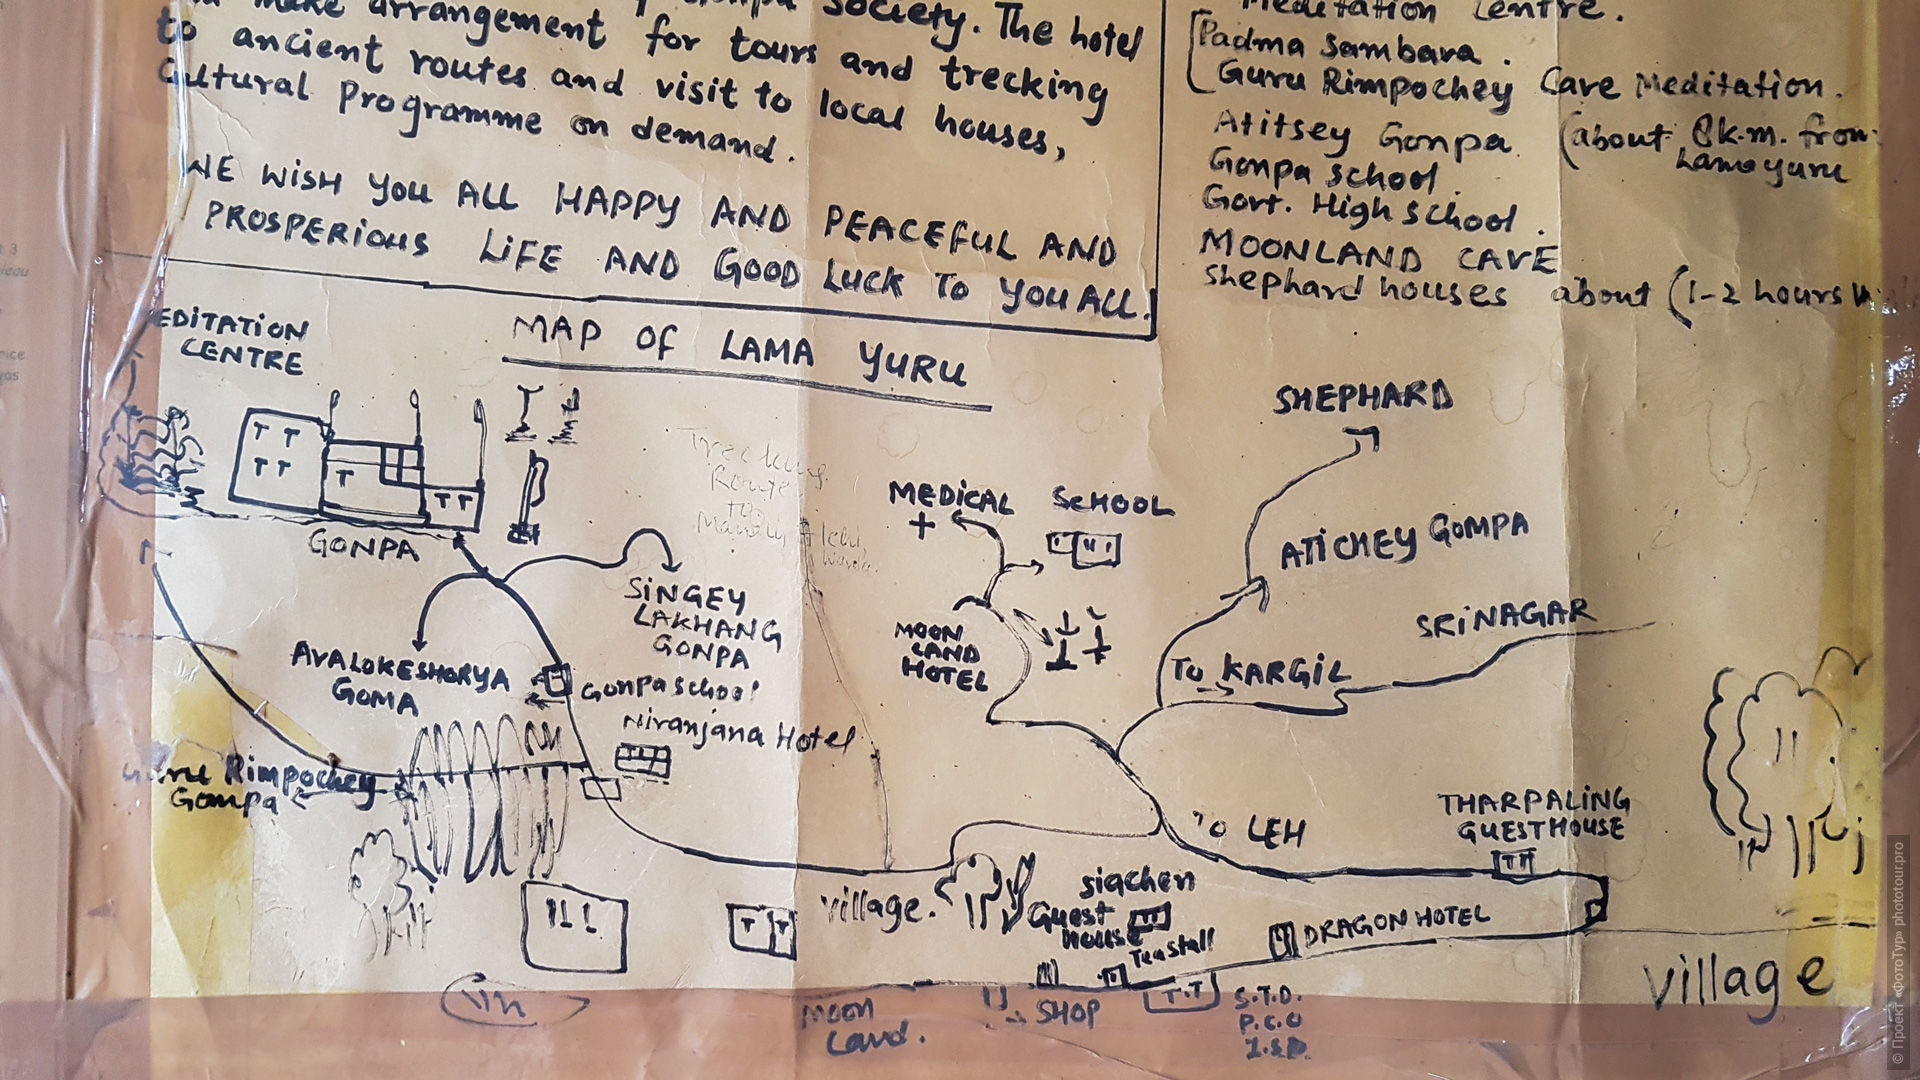 make arrangement for tours and trecking
Society. The hotel
to ancient routes and visit to local houses,
Cultural Programme on demand.
WE WISH YOU ALL HAPPY AND PEACEFUL AND
PROSPERIOUS LIFE AND GOOD LUCK TO YOU ALL.
Meditation Centre.
Padma Sambara.
Guru Rimpochey Cave Meditation.
Atitsey Gonpa (about 8k.m. from
Lamayuru
Gonpa School.
Govt. High School.
MOONLAND CAVE
Shephard houses about (1-2 hours
MAP OF LAMA YURU
EDITATION
CENTRE
GONPA
Trecking
Route
to
SINGEY
LAKHANG
GONPA
AVALOKESHORYA
GOMA
Gonpa school
Niranjana Hotel
Guru Rimpochey
Gompa
MEDICAL
SCHOOL
MOON
LAND
HOTEL
SHEPHARD
ATICHEY GOMPA
SRINAGAR
TO KARGIL
TO LEH
THARPALING
GUESTHOUSE
village.
Siachen
Guest
House
Teastall
DRAGON HOTEL
village
Moon
Land.
SHOP
S.T.D.
P.C.O
I.S.D.
© Проект «ФотоТур» phototour.pro